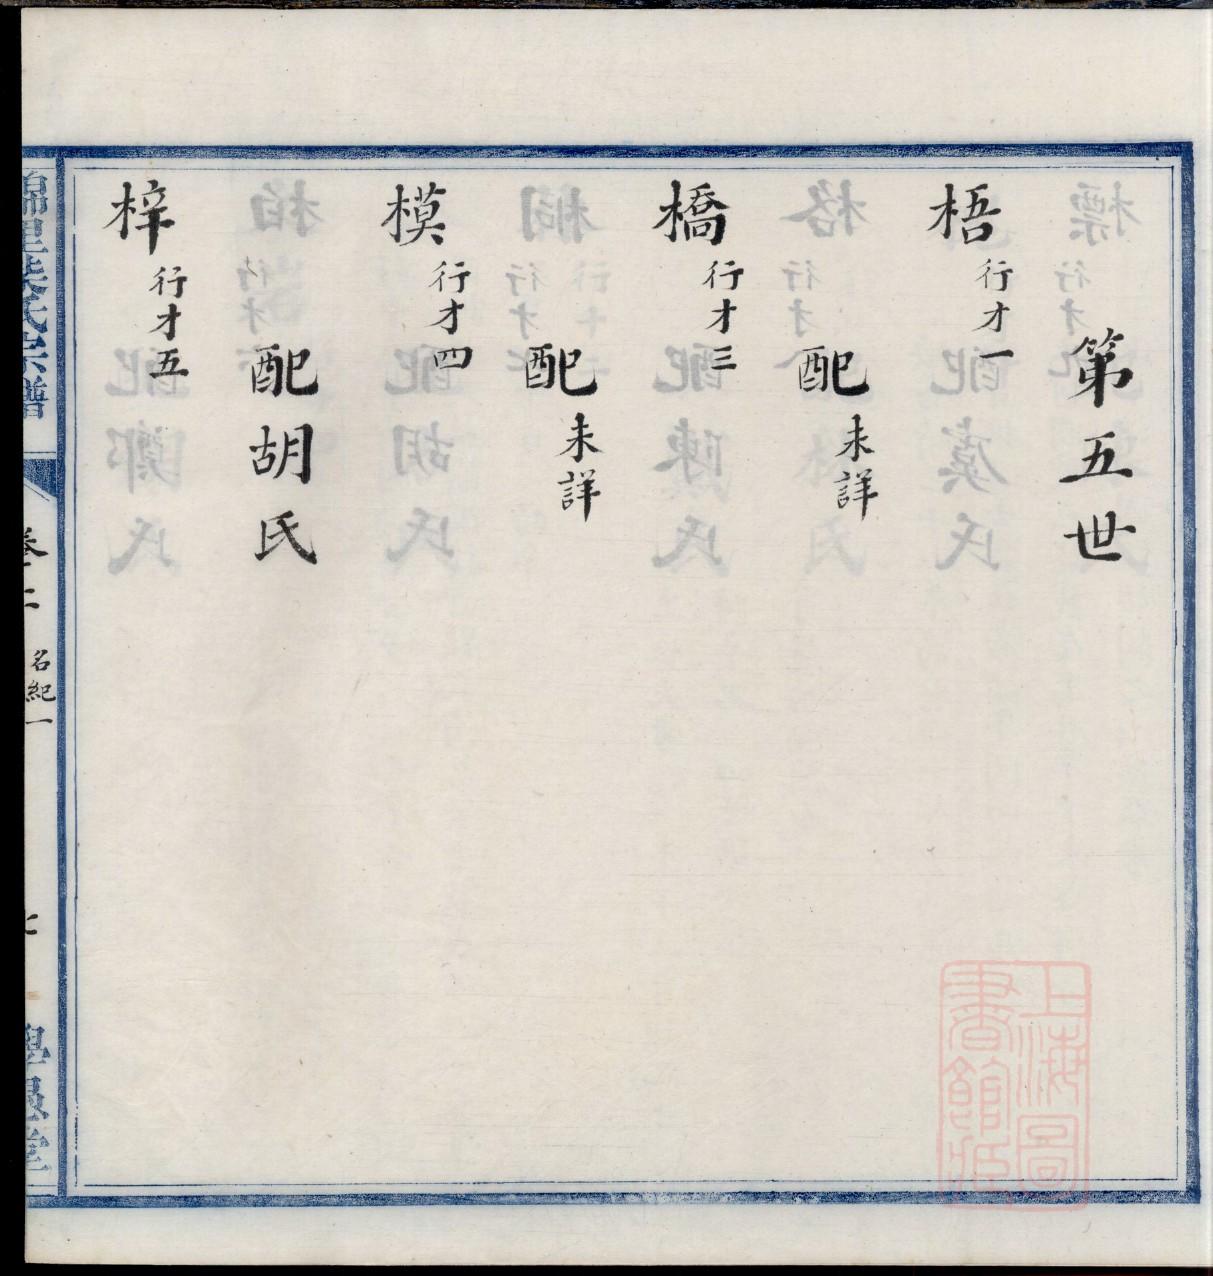 第五世
梧 行才一
配 未詳
橋 行才三
配 未詳
模 行才四
配胡氏
梓 行才五
氏宗譜
卷二
名紀一
七
上海圖
書館臧